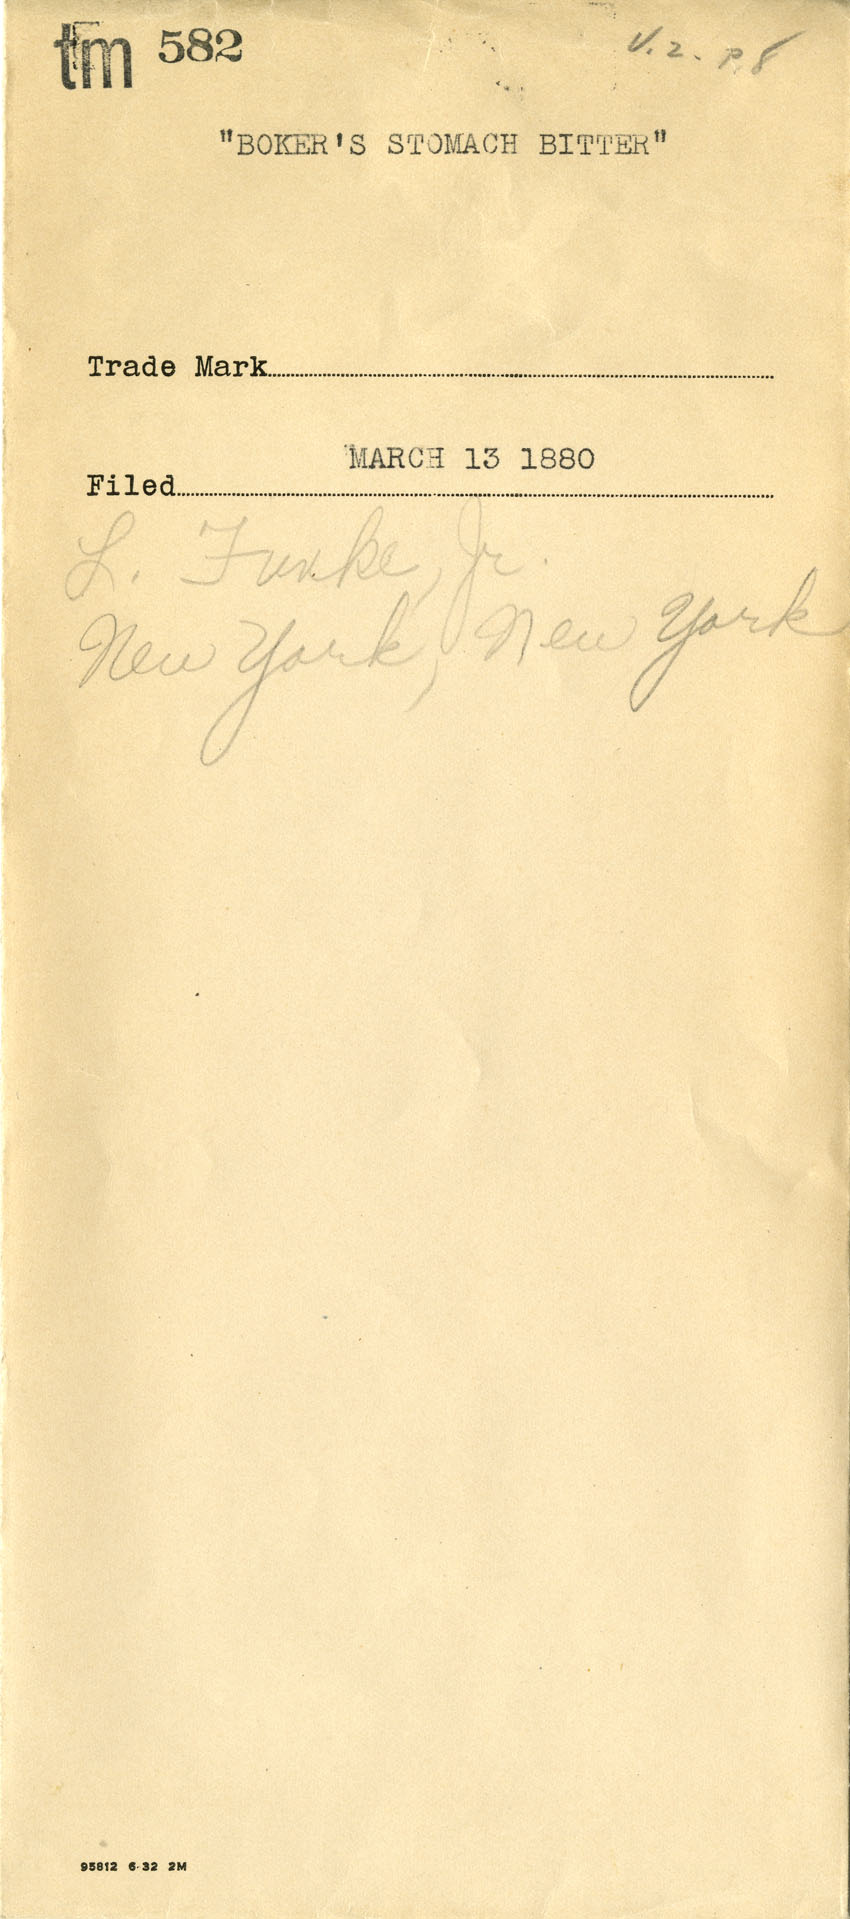 tm 582
V.2. P.8
"BOKER'S STOMACH BITTER"
Trade Mark
MARCH 13 1880
Filed
L. Funke, Jr.
New York, New York
95812 6-32 2M